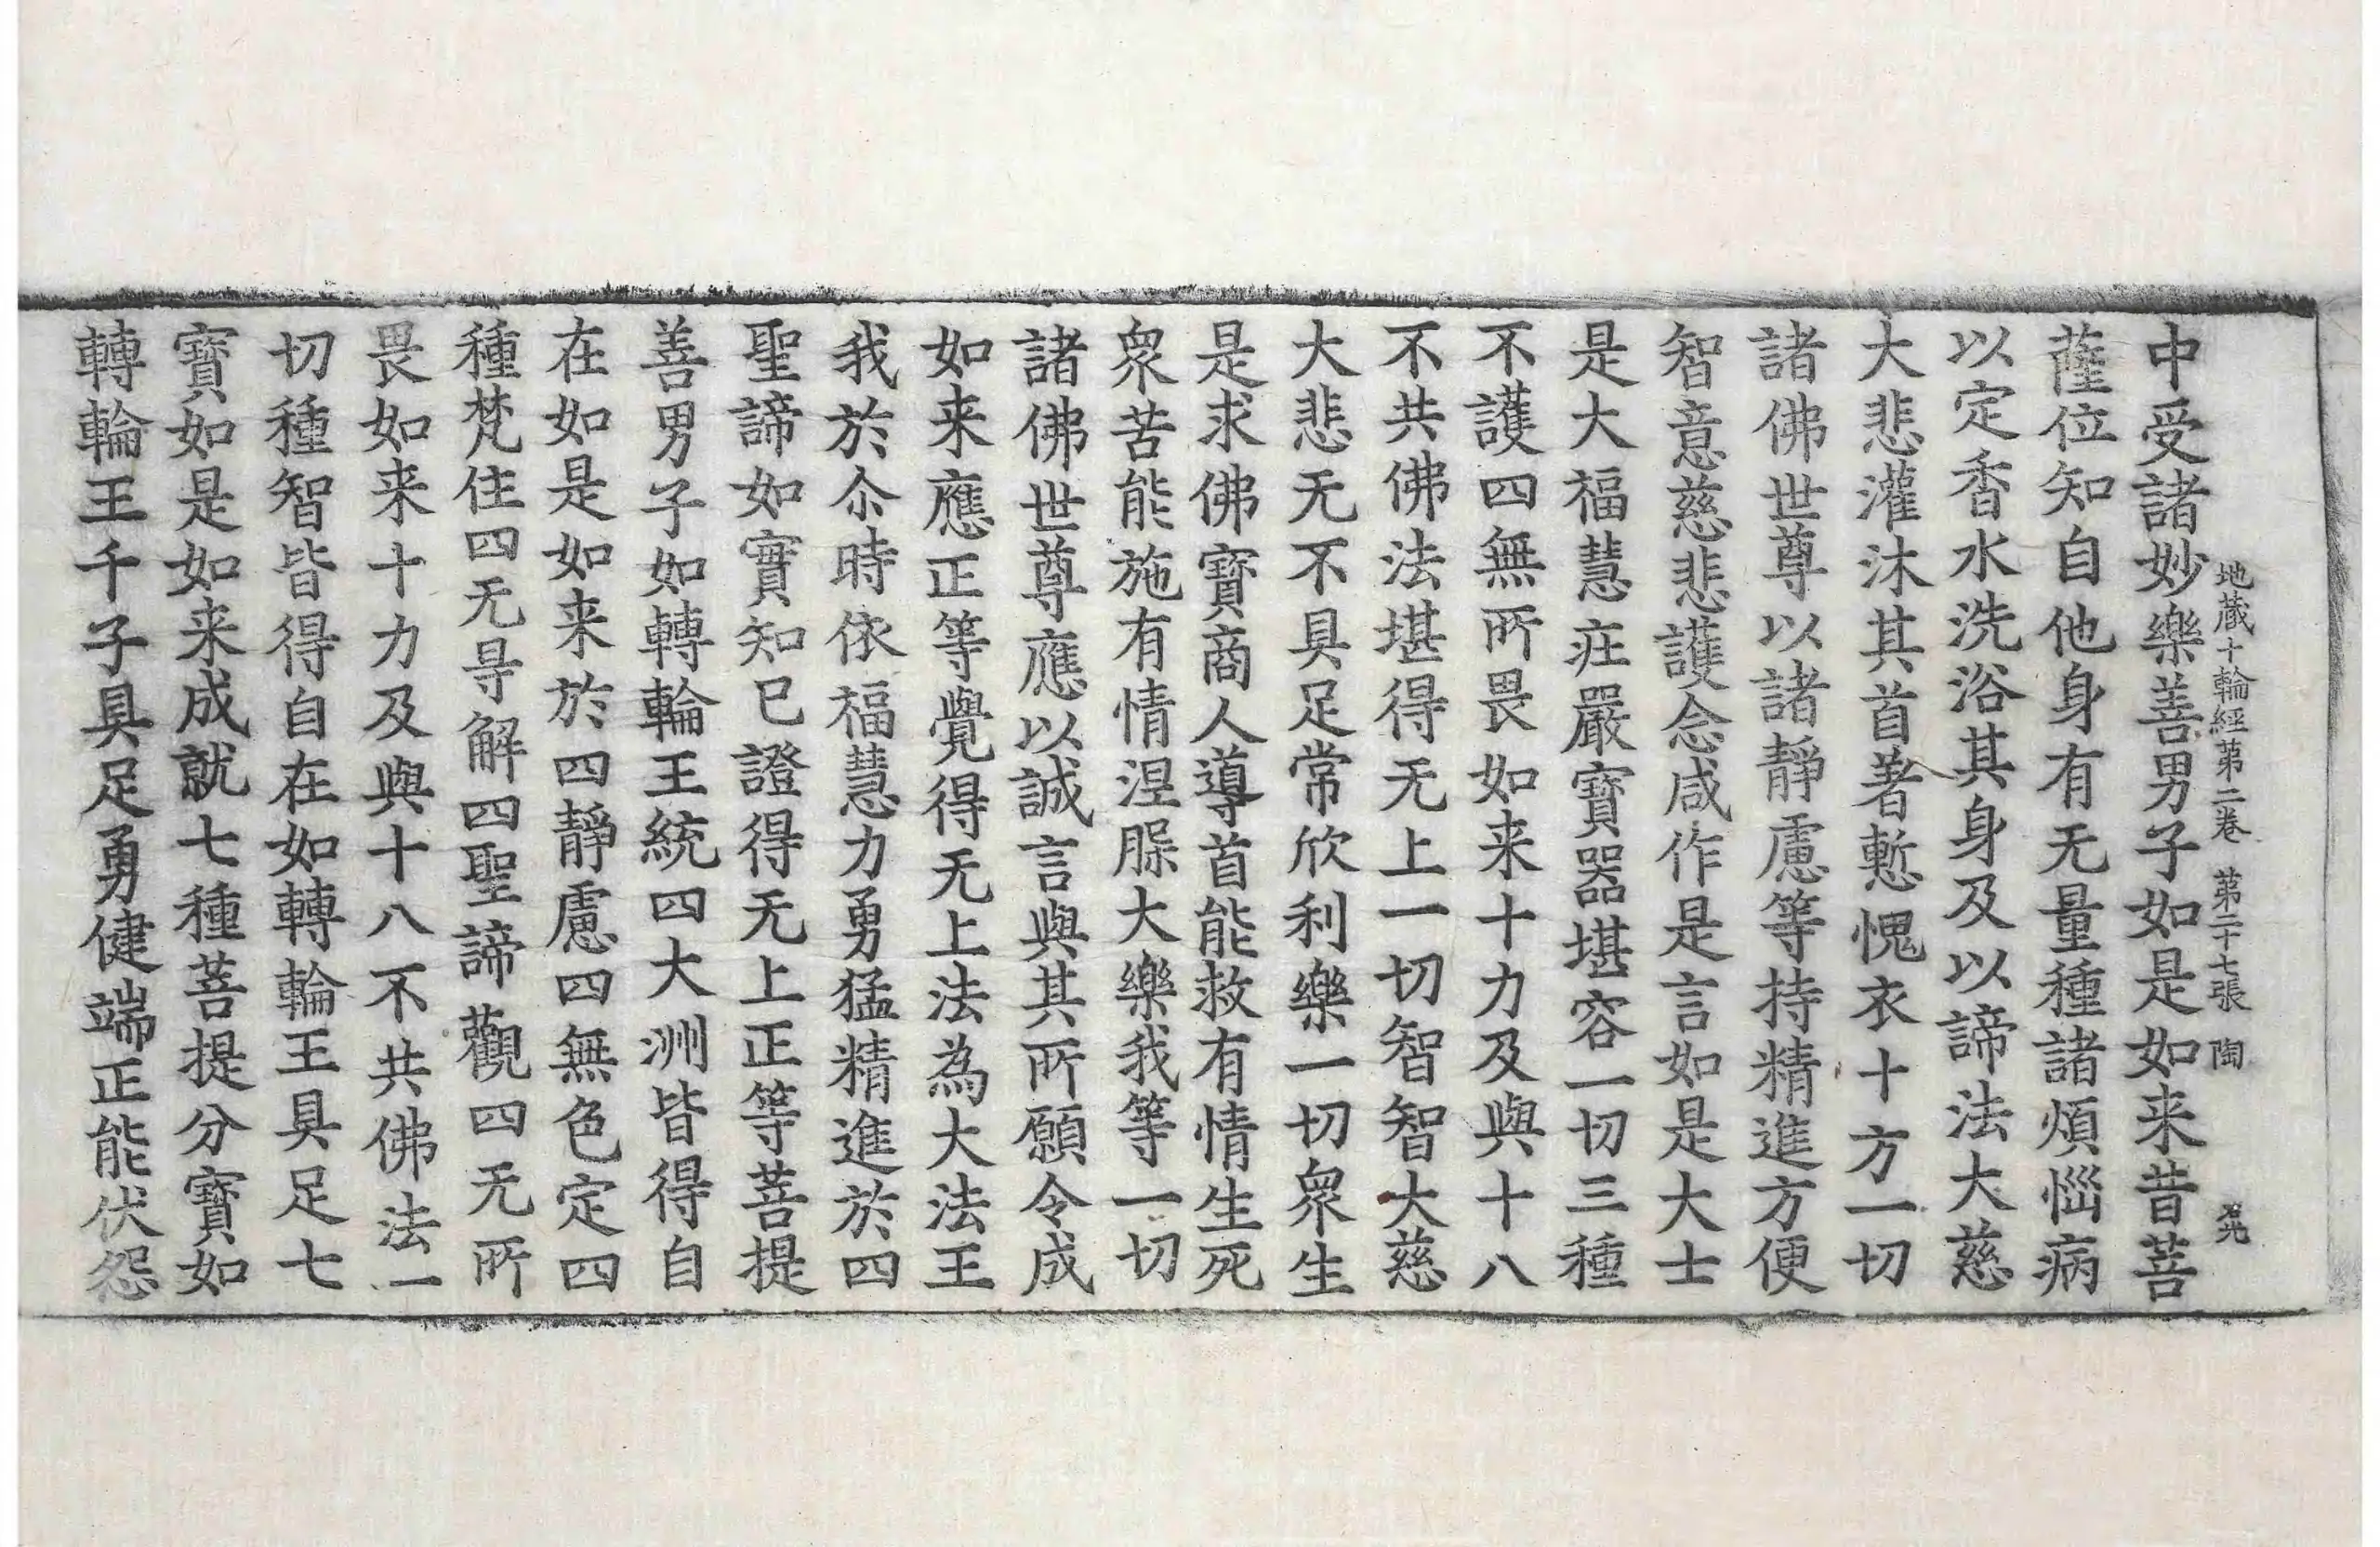 地蔵十輪經第二卷 第二十七張 陶
中受諸妙樂善男子如是如来昔菩
薩位知自他身有无量種諸煩惱病
以定香水洗浴其身及以諦法大慈
大悲灌沐其首著慙愧衣十方一切
諸佛世尊以諸靜慮等持精進方便
智意慈悲護念咸作是言如是大士
是大福慧疘嚴寶器堪容一切三種
不護四無所畏如来十力及與十八
不共佛法堪得无上一切智智大慈
大悲无不具足常欣利樂一切衆生
是求佛寶商人導首能救有情生死
衆苦能施有情涅槃大樂我等一切
諸佛世尊應以誠言與其所願令成
如来應正等覺得无上法為大法王
我於尒時依福慧力勇猛精進於四
聖諦如實知已證得无上正等菩提
善男子如轉輪王統四大洲皆得自
在如是如来於四靜慮四無色定四
種梵住四无㝵解四聖諦觀四无所
畏如来十力及與十八不共佛法一
切種智皆得自在如轉輪王具足七
寶如是如来成就七種菩提分寶如
轉輪王千子具足勇健端正能伏怨